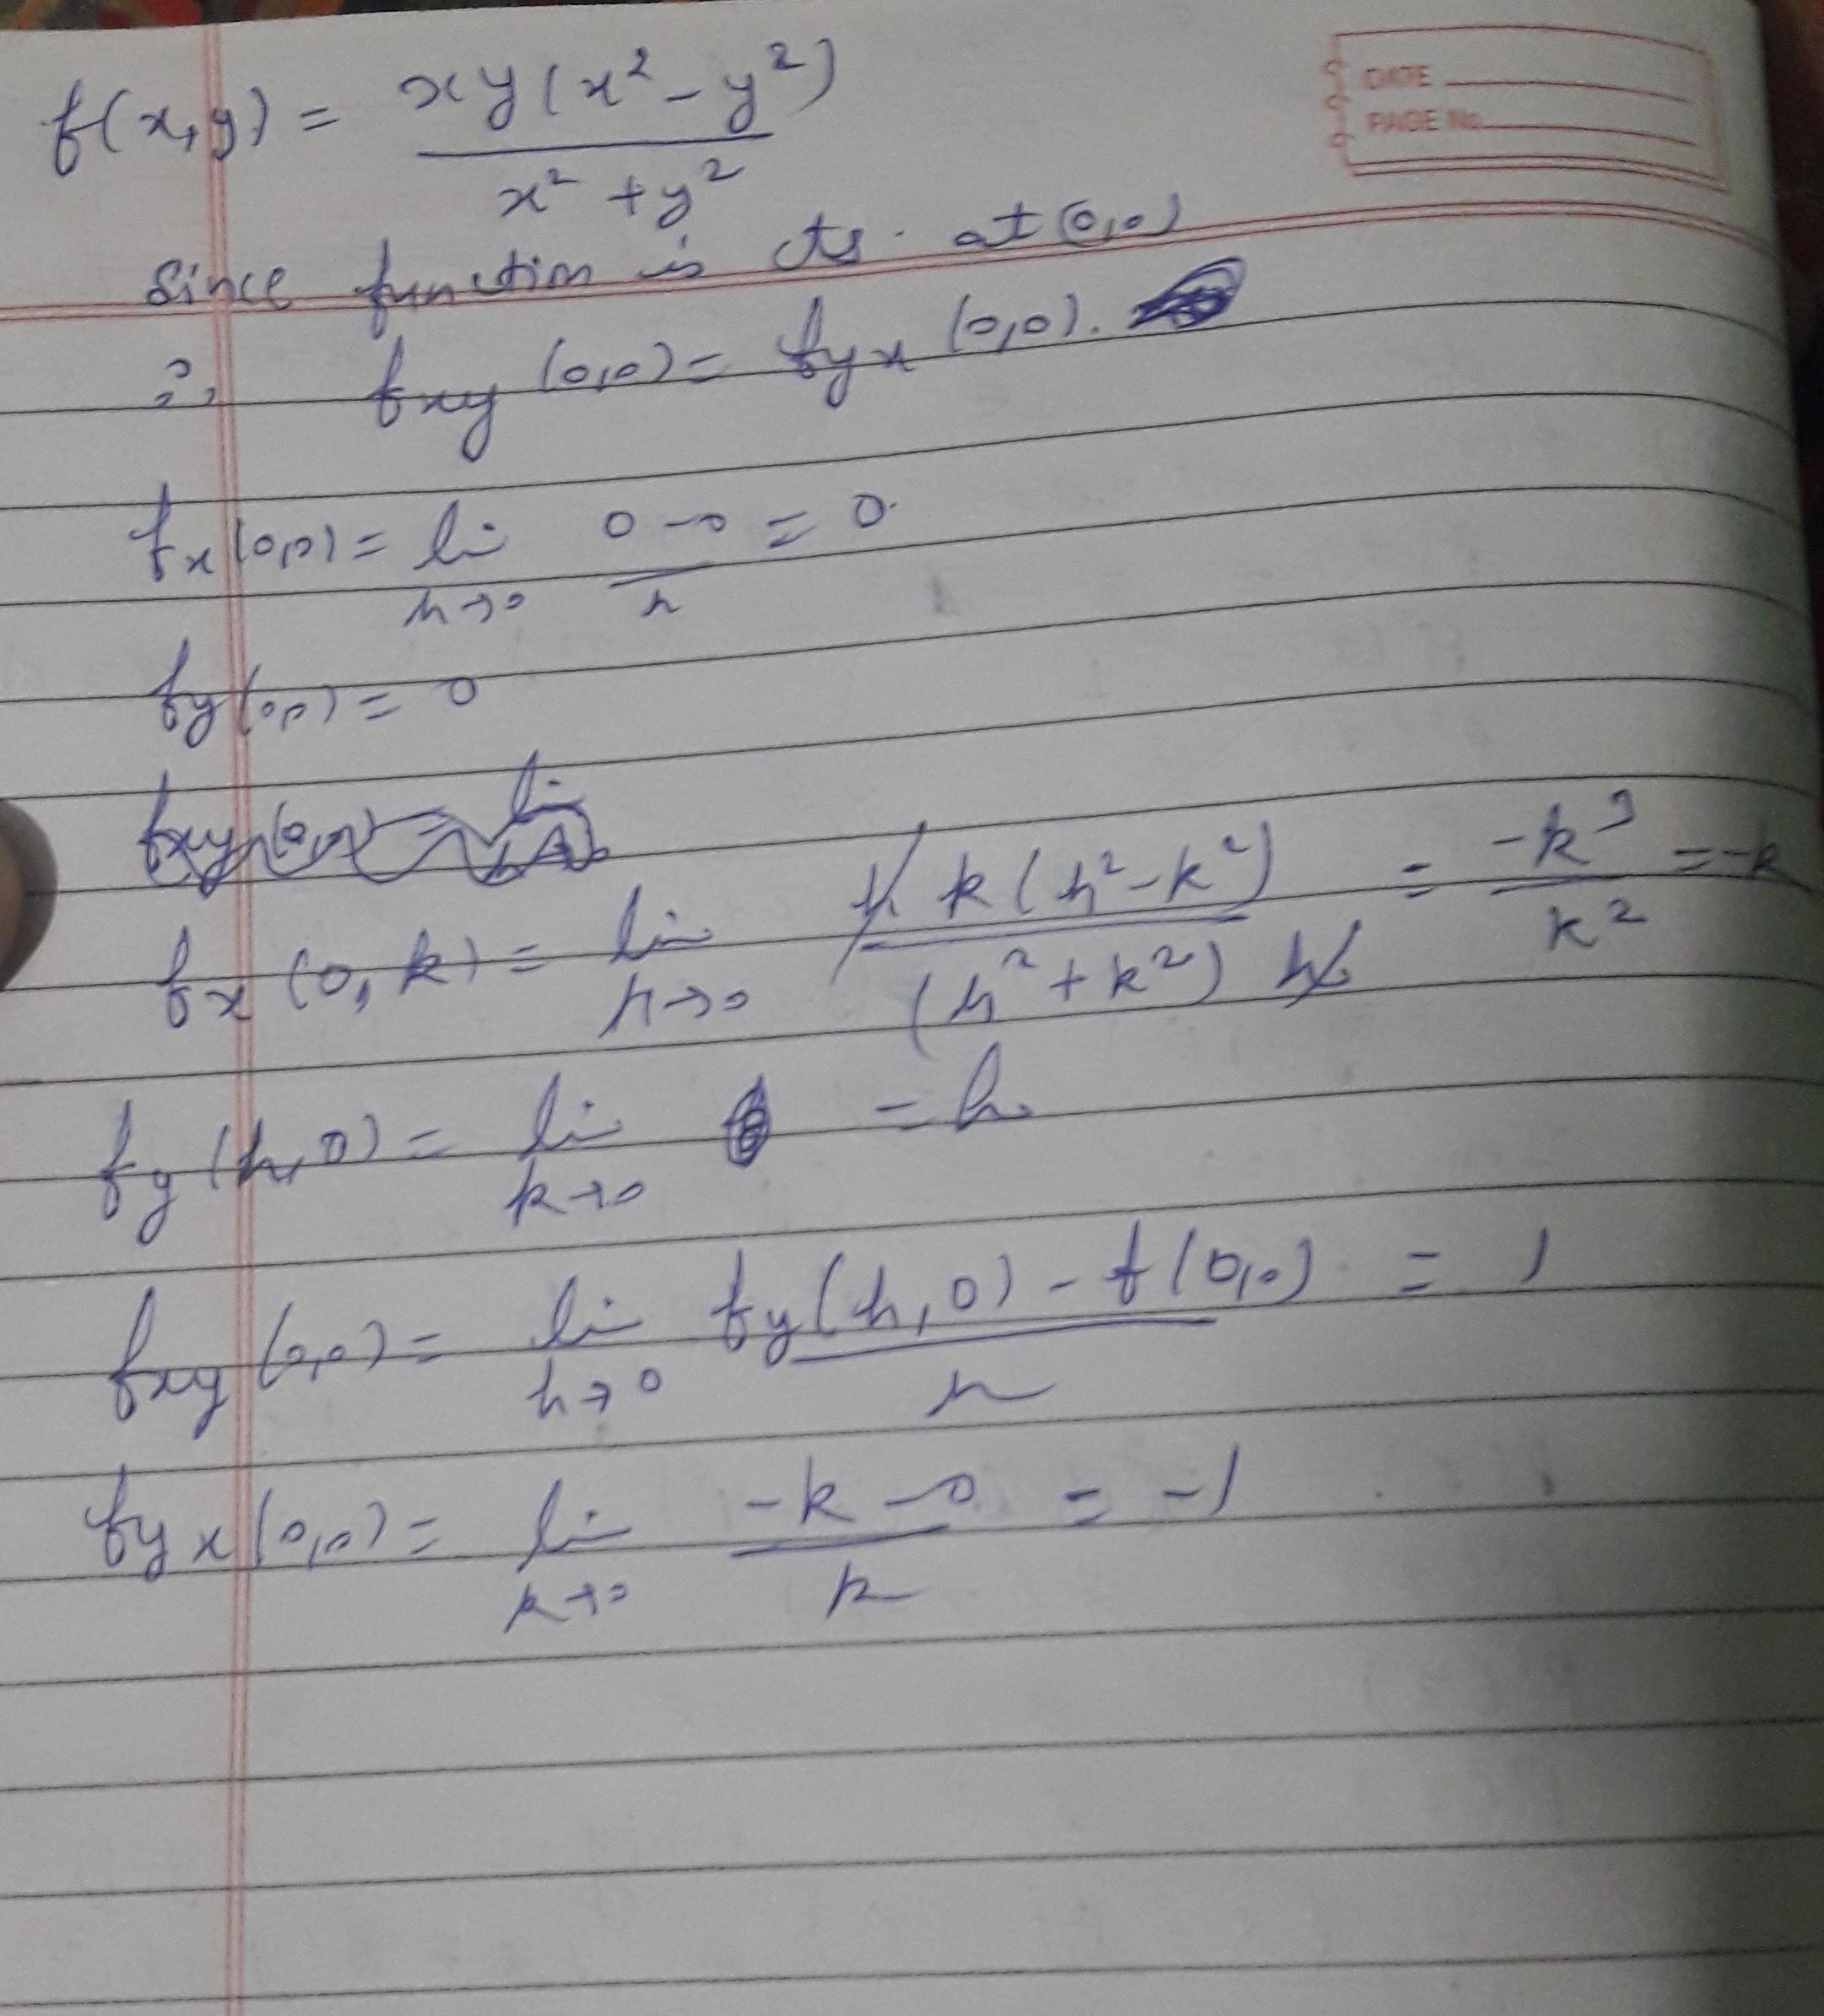 DATE
PAGE No.
f(x,y) = xy(x² - y²) / x² + y²
Since function is cts. at (0,0)
∴ fxy (0,0) = fyx (0,0).
fx(0,0) = li h→0 0-0 / h = 0.
fy(0,0) = 0
fx (0,k) = li h→0 h k(h²-k²) / (h²+k²) h = -k³ / k² = -k
fy(h,0) = li k→0 = h.
fxy(0,0) = li h→0 fy(h,0) - f(0,0) / h = 1
fyx(0,0) = li k→0 -k-0 / k = -1